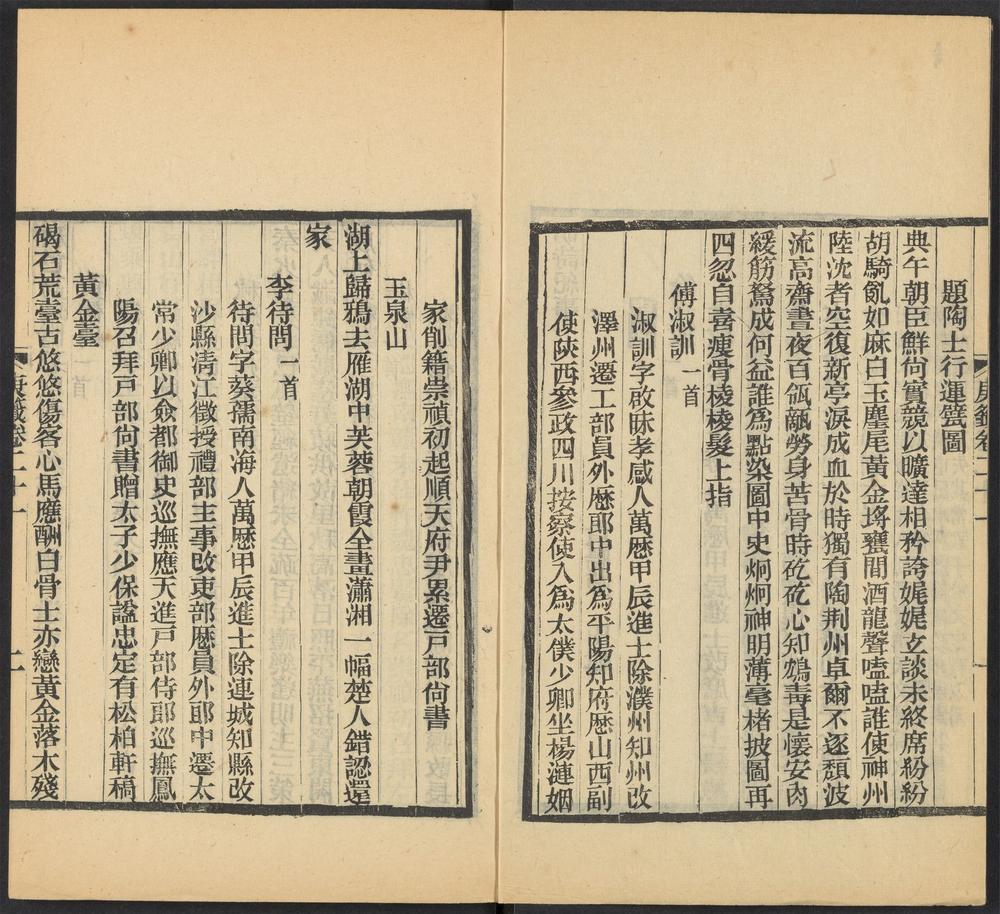 題陶士行運甓圖
典午朝臣鮮尚實競以曠達相矜誇娓娓玄談未終席紛紛
胡騎亂如麻白玉麈尾黃金埒甕間酒龍聲嗑嗑誰使神州
陸沈者空復新亭淚成血於時獨有陶荊州卓爾不逐頹波
流高齋晝夜百瓴甋勞身苦骨時矻矻心知鴆毒是懷安肉
緩筋駑成何益誰爲點染圖中史炯炯神明薄毫楮披圖再
四忽自喜瘦骨棱棱髮上指
傅淑訓一首
淑訓字啟昧孝感人萬歷甲辰進士除濮州知州改
澤州遷工部員外歷郎中出爲平陽知府歷山西副
使陝西參政四川按察使入爲太僕少卿坐楊漣姻
家削籍崇禎初起順天府尹累遷戸部尚書
玉泉山
湖上歸鴉去雁湖中芙蓉朝霞全畫瀟湘一幅楚人錯認還
家
李待問一首
待問字葵孺南海人萬歷甲辰進士除連城知縣改
沙縣清江徵授禮部主事改吏部歷員外郎中遷太
常少卿以僉都御史巡撫應天進戸部侍郎巡撫鳳
陽召拜戸部尚書贈太子少保諡忠定有松柏軒稿
黃金臺
碣石荒臺古悠悠傷客心馬應酬白骨士亦戀黃金落木殘
庚籤卷二十一
二